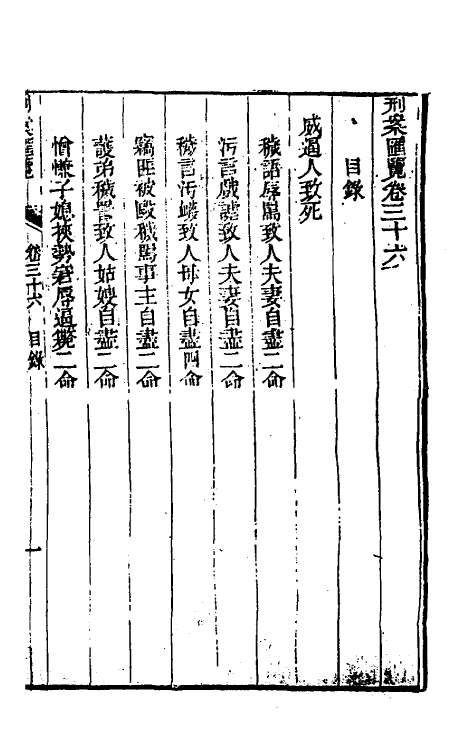 刑案匯覽卷三十六
目錄
威逼人致死
穢語辱罵致人夫妻自盡二命
污言戲謔致人夫妻自盡二命
穢言污衊致人母女自盡四命
竊匪被毆穢罵事主自盡二命
護弟穢詈致人姑嫂自盡二命
子媳挾勢窘辱逼斃二命
刑案匯覽
卷三十六 目錄
一